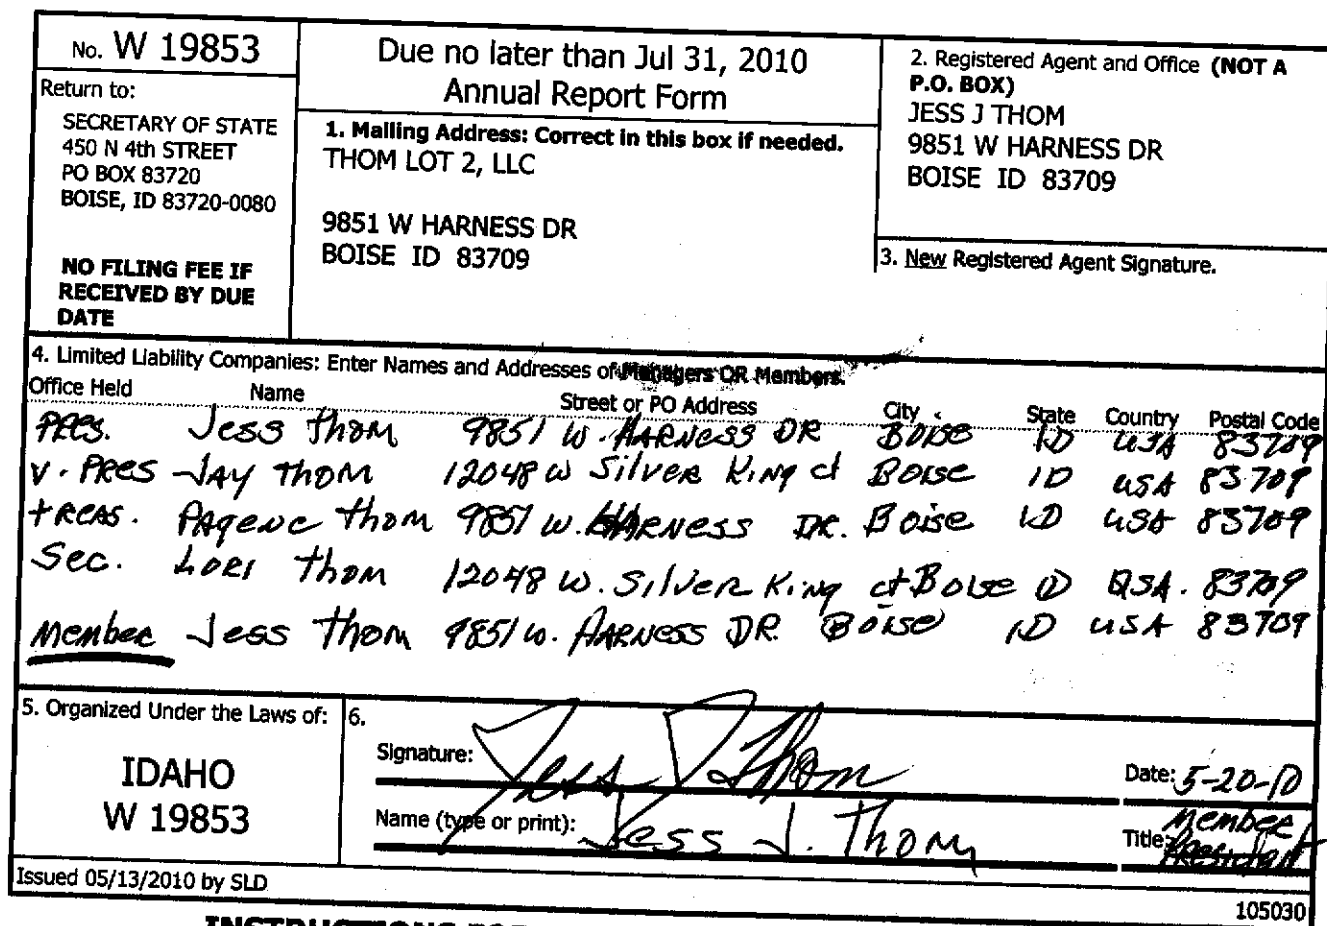 No. W 19853
Return to:
SECRETARY OF STATE
450 N 4th STREET
PO BOX 83720
BOISE, ID 83720-0080
NO FILING FEE IF
RECEIVED BY DUE
DATE
Due no later than Jul 31, 2010
Annual Report Form
1. Mailing Address: Correct in this box if needed.
THOM LOT 2, LLC
9851 W HARNESS DR
BOISE ID 83709
2. Registered Agent and Office (NOT A
P.O. BOX)
JESS J THOM
9851 W HARNESS DR
BOISE ID 83709
3. New Registered Agent Signature.
4. Limited Liability Companies: Enter Names and Addresses of Managers OR Members.
Office Held Name Street or PO Address City State Country Postal Code
PRES. Jess Thom 9851 W. HARNESS DR BOISE ID USA 83709
V. PRES JAY THOM 12048 W Silver King ct BOISE ID USA 83709
TREAS. PAgene Thom 9851 W. HARNESS DR. Boise ID USA 83709
Sec. LORI Thom 12048 W. Silver King ct Boise ID USA. 83709
Member Jess Thom 9851 W. HARNESS DR. BOISE ID USA 83709
5. Organized Under the Laws of:
IDAHO
W 19853
6.
Signature: Jess J Thom
Date: 5-20-10
Name (type or print): Jess J. Thom
Title: Member/
President
Issued 05/13/2010 by SLD
105030